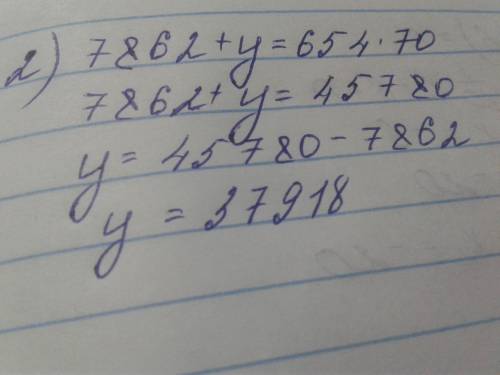 2) 7862+y=654·70
7862+y=45780
y=45780-7862
y=37918